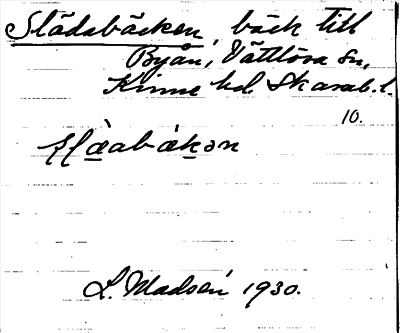 Slädabäcken, bäck till
Byån, Vättlösa sn,
Kinne hd. Skarab. l.
10.
L. Madsén 1930.